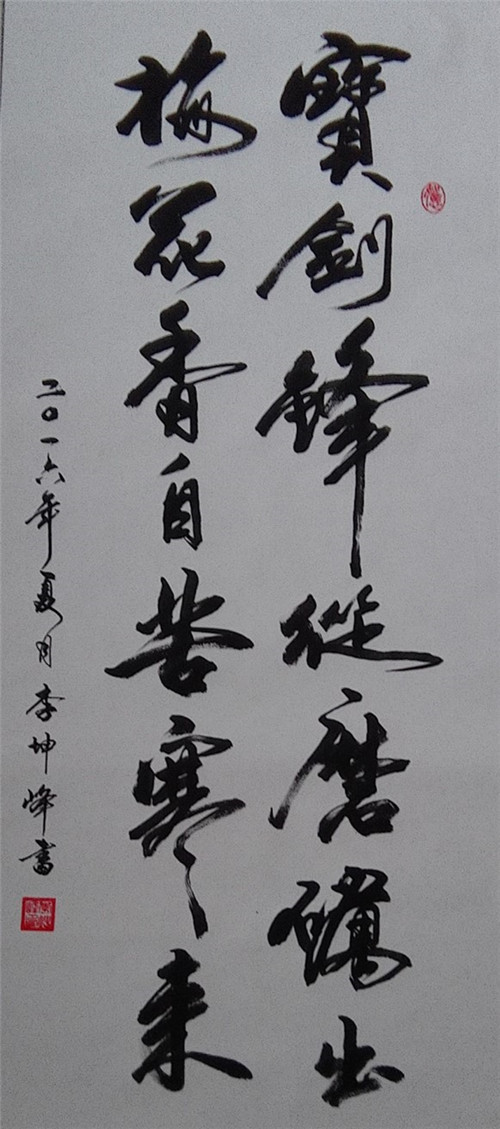 寶劍鋒從磨礪出
梅花香自苦寒来
二〇一六年夏月李坤峰書